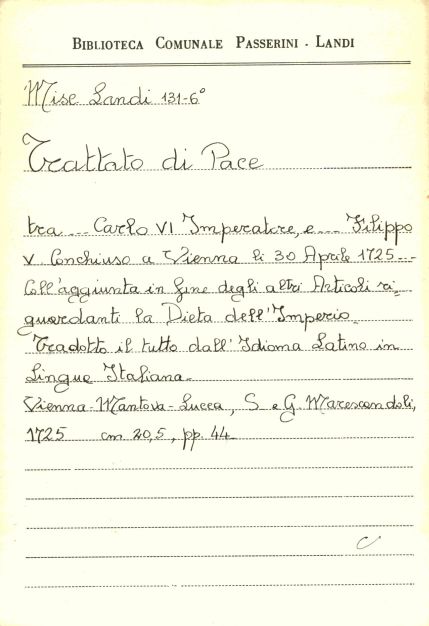 BIBLIOTECA COMUNALE PASSERINI - LANDI
Misc Landi 131-6°
Trattato di Pace
tra ... Carlo VI Imperatore, e ... Filippo
V Conchiuso a Vienna li 30 Aprile 1725...
Coll'aggiunta in fine degli altri Articoli ri-
guardanti la Dieta dell'Imperio.
Tradotto il tutto dall'Idioma Latino in
Lingua Italiana.
Vienna-Mantova-Lucca, S. e G. Marescandoli,
1725 cm 20,5, pp. 44
C